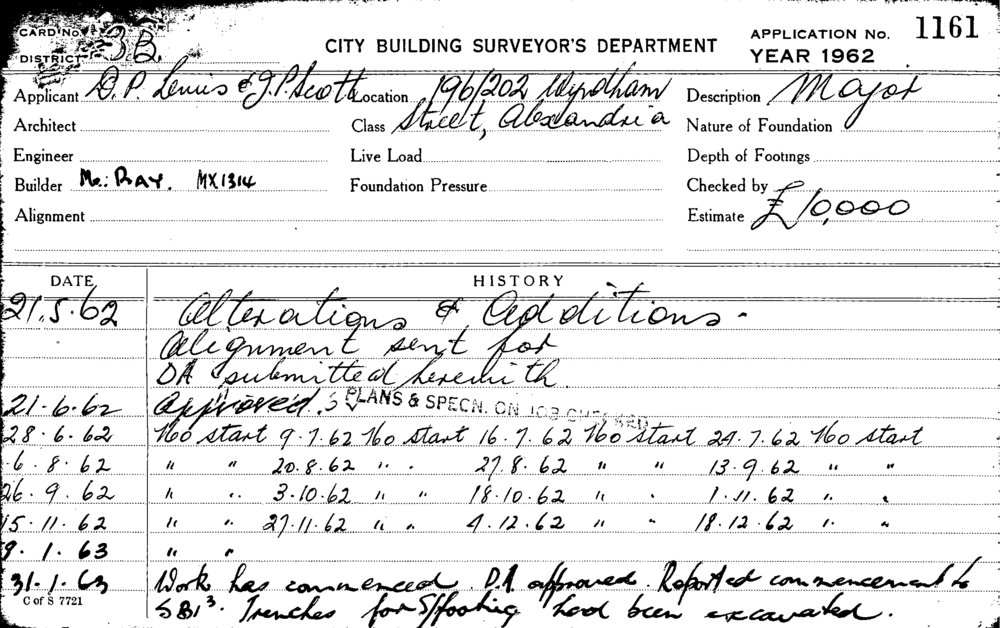 CARD No.
DISTRICT 3B
CITY BUILDING SURVEYOR'S DEPARTMENT
APPLICATION No. 1161
YEAR 1962
Applicant D.P. Lewis & J.P. Scott Location 196/202 Wyndham Description Major
Architect Class Street, Alexandria Nature of Foundation
Engineer Live Load Depth of Footings
Builder Mr: Ray. MX1314 Foundation Pressure Checked by
Alignment Estimate £10,000
DATE HISTORY
21.5.62 Alterations & Additions -
Alignment sent for
DA submitted herewith
21.6.62 Approved. PLANS & SPECN. ON JOB CHECKED
28.6.62 No start 9.7.62 No start 16.7.62 No start 24.7.62 No start
6.8.62 " " 20.8.62 " " 27.8.62 " " 13.9.62 " "
26.9.62 " " 3.10.62 " " 18.10.62 " " 1.11.62 " "
15.11.62 " " 27.11.62 " " 4.12.62 " " 18.12.62 " "
9.1.63 " "
31.1.63 Work has commenced. D.A approved. Reported commencement to
C of S 7721
SBI³. Trenches for S/footing had been excavated.